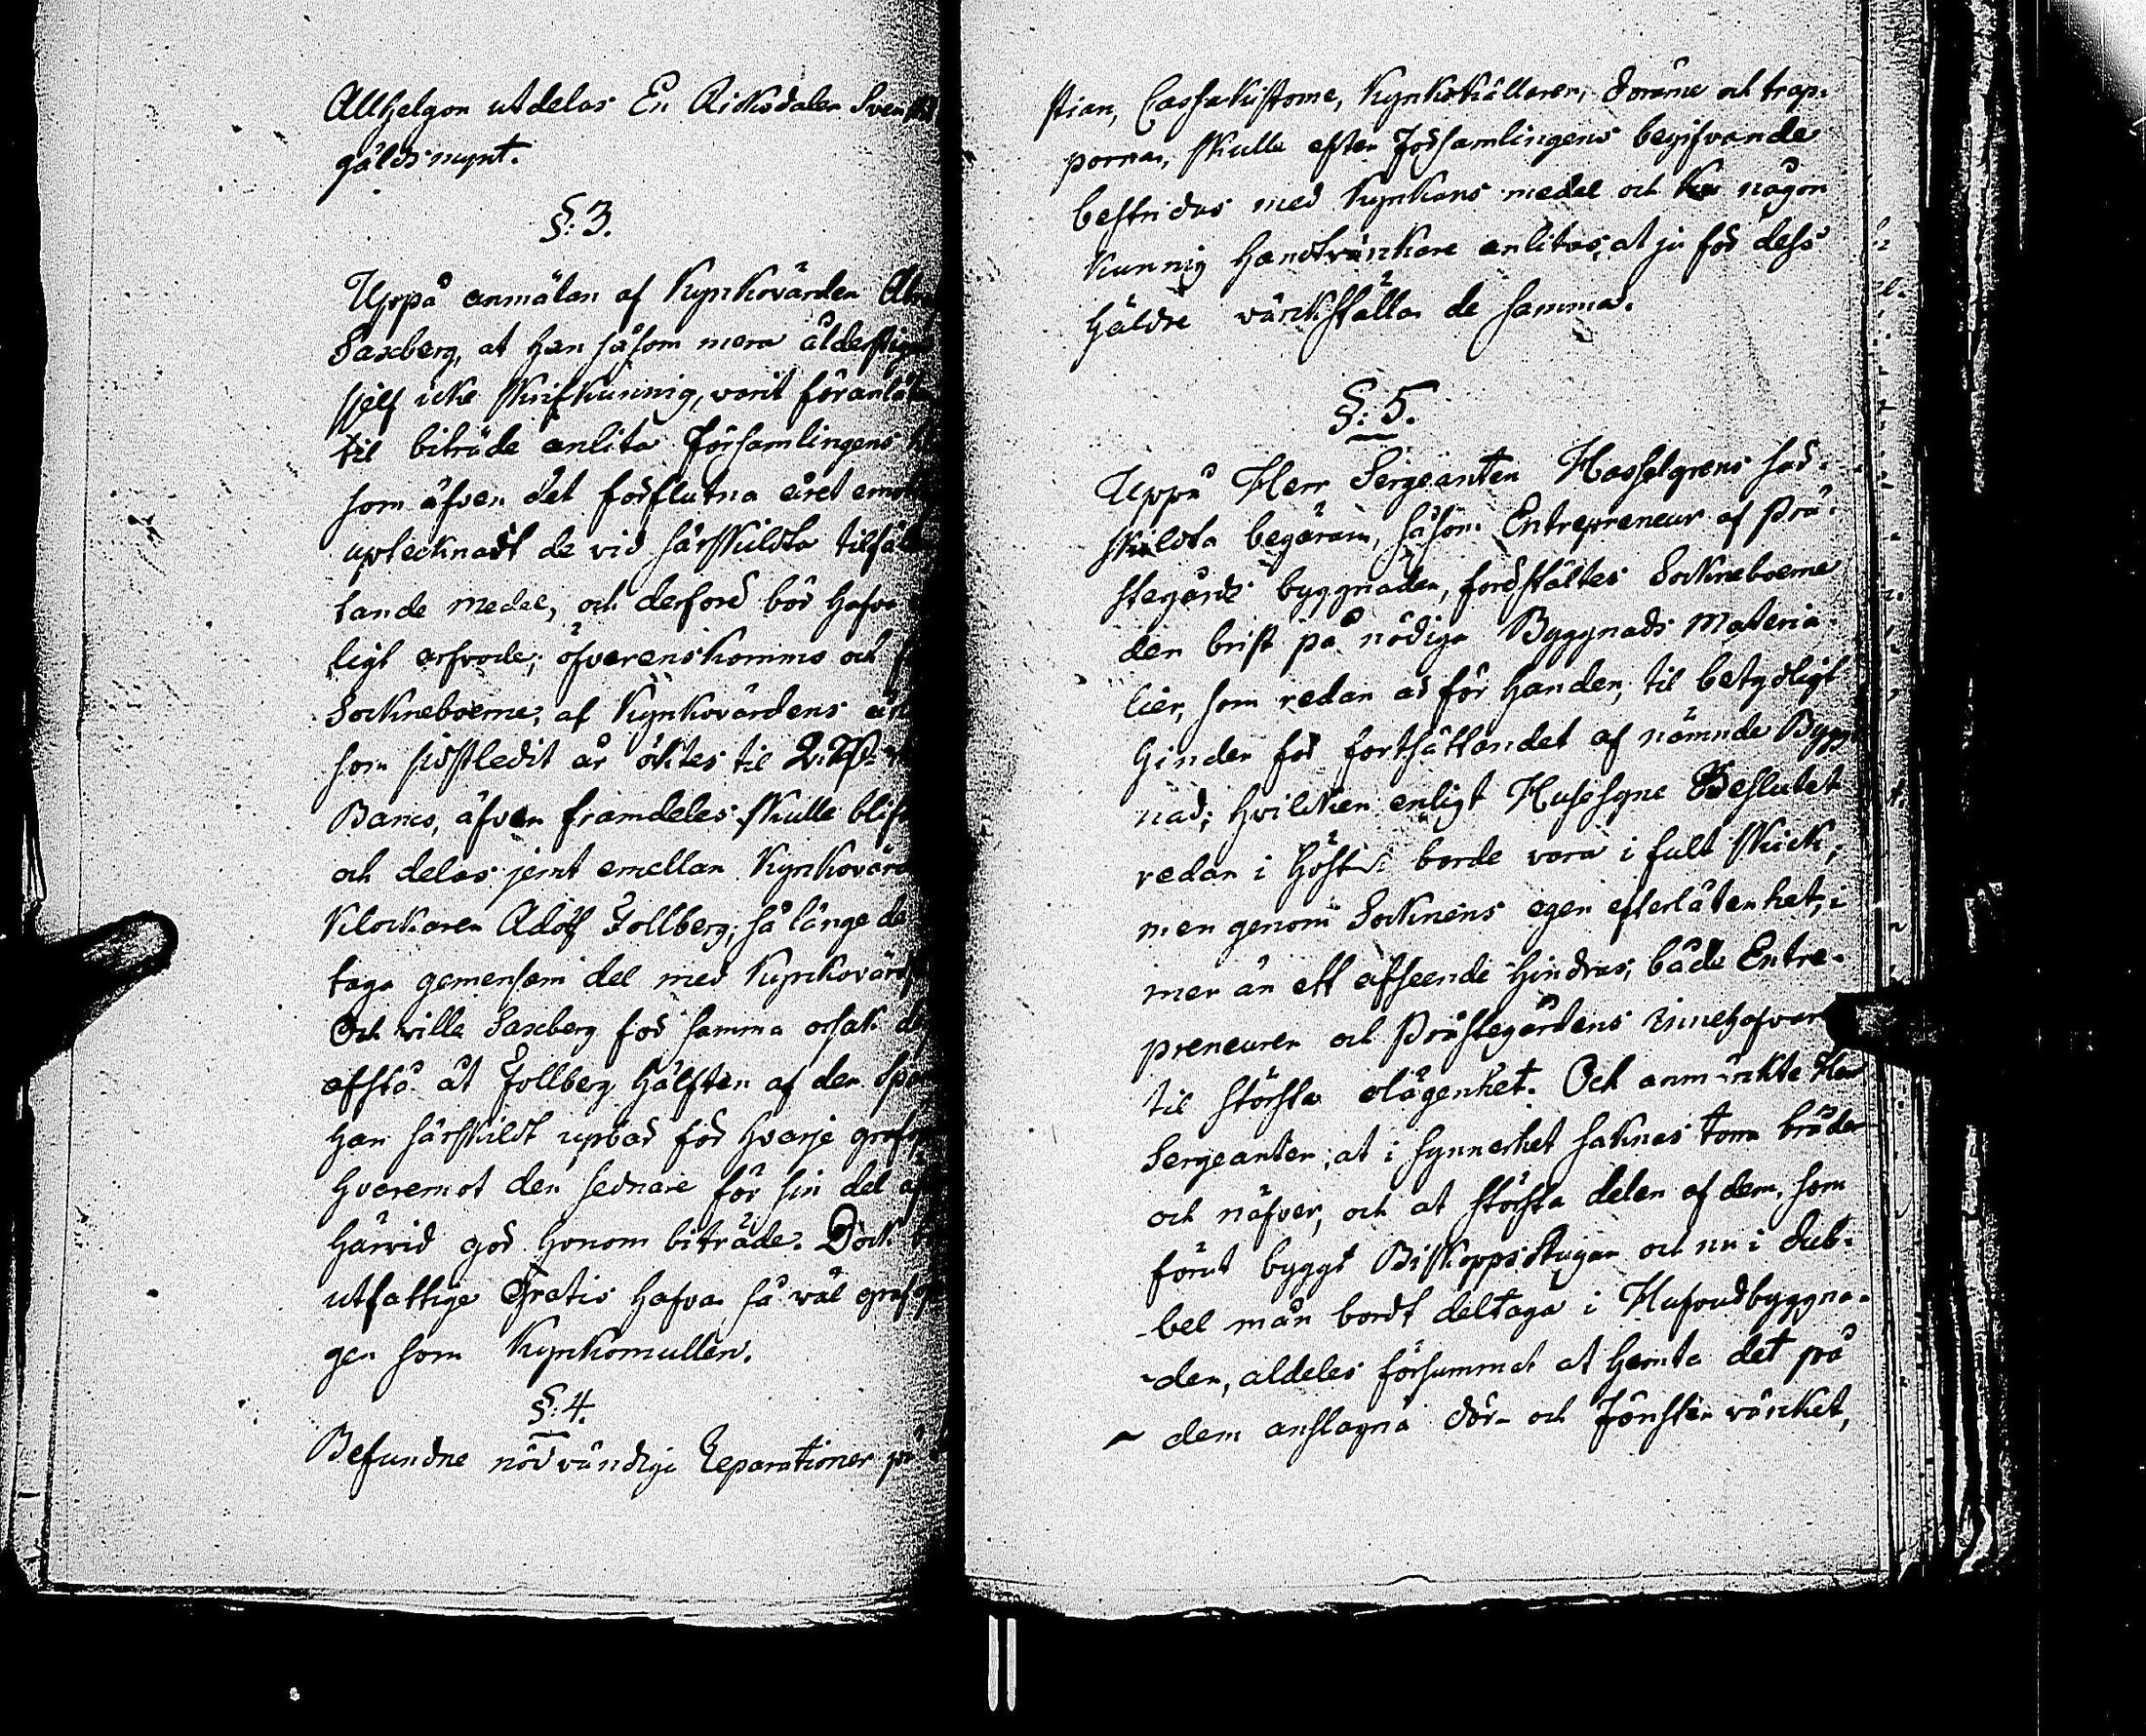 Allhelgon utdelas En Riksdaler Svensk
gäldsmynt.
§. 3.
Uppå anmälan af Kyrkovärden
Saxberg, at han såsom mera ålderstigen
sjelf icke skrifkunnig, varit föranlåten
til biträde anlita Församlingens
som äfven det förflutna året
uptecknadt de vid särskildta
tande medel, och derföre bör hafva
ligt arfvode; öfverenskommo och
Sockneboerne, af Kyrkovärdens
som sidstledit år öktes til 2.
Banco, äfven framdeles skulle
och delas jemt emellan
Klockaren Adolf Follberg, så länge de
taga gemensam del med
Och ville Saxberg för samma orsak
afstå åt Follberg hälften af den
han särskildt upbär för hvarje
hvaremot den sednare för sin del
härvid gör honom biträde. Dock
utfattige Gratis hafva så väl
gen som Kyrkomullen.
§. 4.
Befundne nödvändige Reparationer på
stian, Cassakistorne, Kyrkokällaren, dörarne och trap-
porna, skulle efter Församlingens begifvande
bestridas med Kyrkans medel och någon
kunnig handtvärkare anlitas, at ju för dess
häldre värckställa de samma.
§. 5.
Uppå Herr Sergeanten Hasselgrens sär-
skildta begäran, såsom Entrepreneur af Prä-
stegårds byggnaden, förestältes Sockneboerne
den brist på nödiga Byggnads Materia-
lier, som redan är för handen, til betydligt
hinder för fortsättandet af nämnde Bygg-
nad; hvilcken enligt Husesyne Beslutet
redan i höst borde vara i fult skick,
men genom Socknens egen efterlåtenhet, i
mer än ett afseende hindras, både Entre-
preneuren och Prästegårdens Innehafvare
til största olägenhet. Och anmärkte Herr
Sergeanten, at i synnerhet saknas torra bräder
och näfver, och at största delen af dem, som
förut byggt Biskopps Stugan och nu i dub-
bel mån bordt deltaga i Hufvudbyggna-
den, aldeles försummat at hemta det på
dem anslagna dör- och Fönster värcket,